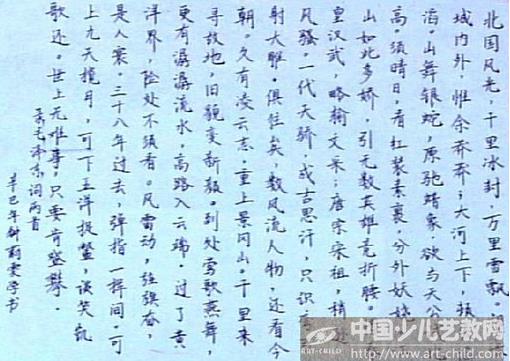 北国风光，千里冰封，万里雪飘。
城内外，惟余莽莽；大河上下，顿
滔。山舞银蛇，原驰蜡象，欲与天公
高。须晴日，看红装素裹，分外妖娆
山如此多娇，引无数英雄竞折腰。
皇汉武，略输文采；唐宗宋祖，稍逊
风骚。一代天骄，成古思汗，只识
射大雕。俱往矣，数风流人物，还看今
朝。久有凌云志。重上景冈山。千里来
寻故地，旧貌变新颜。到处莺歌燕舞
更有潺潺流水，高路入云端。过了黄
洋界，险处不须看。风雷动，旌旗奋，
是人寰。三十八年过去，弹指一挥间。可
上九天揽月，可下五洋捉鳖，谈笑凯
歌还。世上无难事。只要肯登攀。
录毛泽东词两首
辛巳年钟蔚雯学书
中国少儿艺教网
ART-CHILD
http://www.art-child.com